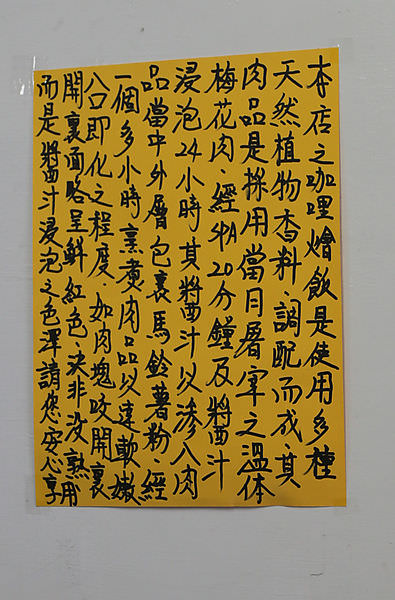 本店之咖哩燴飯是使用多種
天然植物香料、調配而成、其
肉品是採用當日屠宰之溫体
梅花肉、經SPA20分鐘及醬汁
浸泡24小時其醬汁以滲入肉
品當中外層包裹馬鈴薯粉、經
一個多小時烹煮肉品以達軟嫩
入口即化之程度、如肉塊咬開裏
開裏面略呈鮮紅色決非沒熟
而是醬汁浸泡之色澤請您安心享用